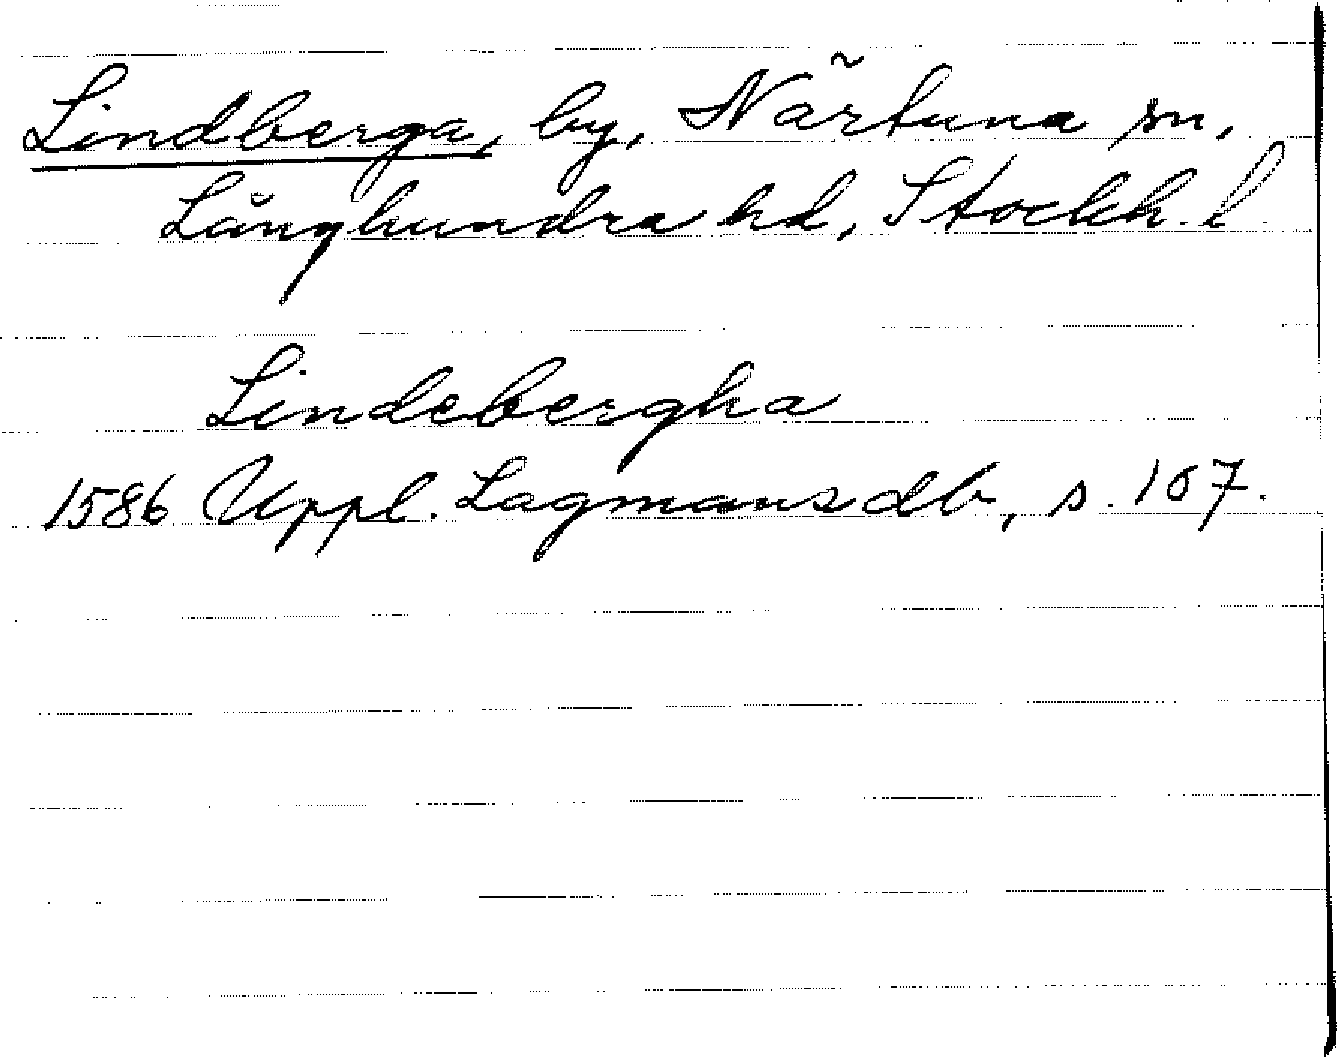 Lindberga, by, Närtuna sn,
Långhundra hd, Stockh. l.
Lindebergha
1586 Uppl. Lagmansdb, s. 107.